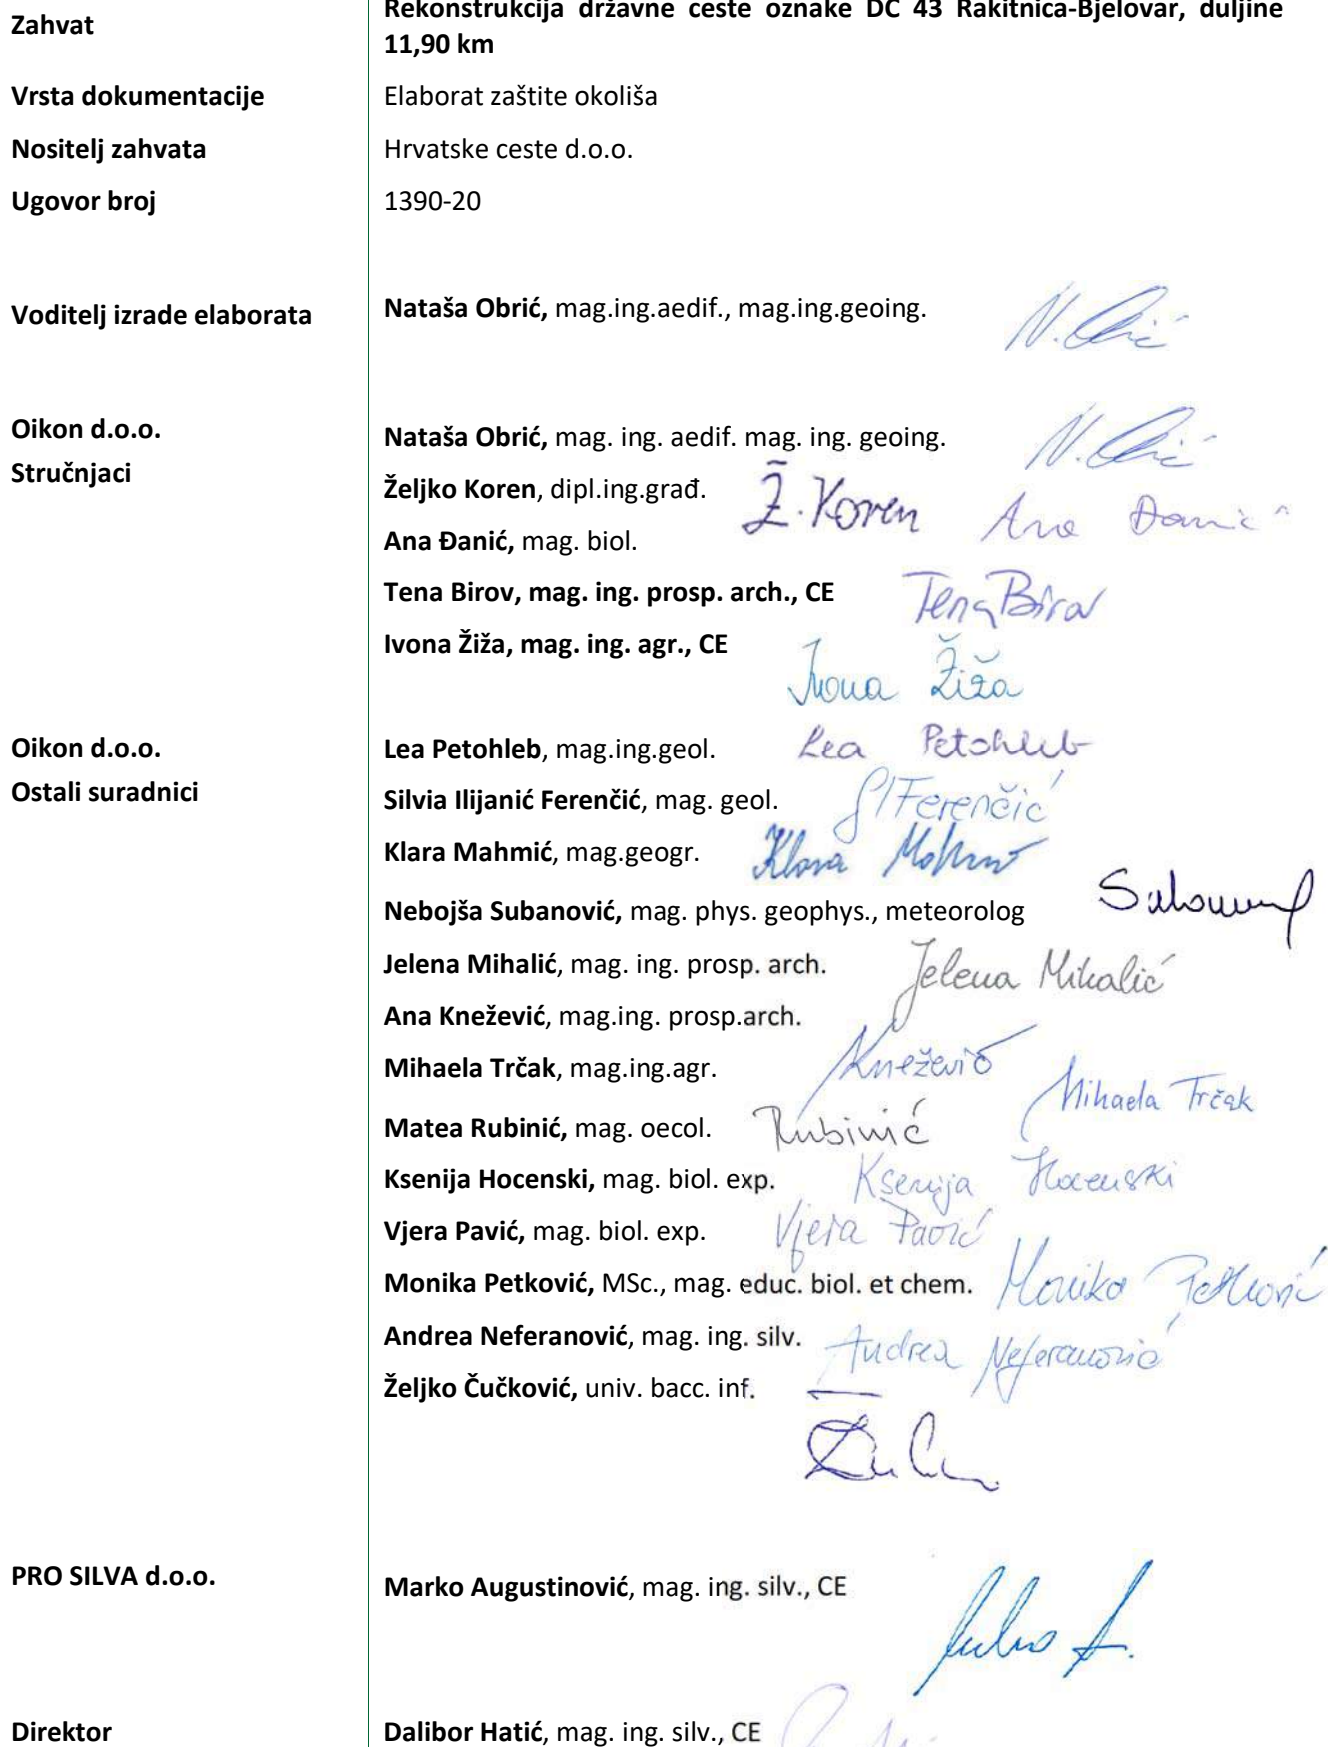 Zahvat
Rekonstrukcija državne ceste oznake DC 43 Rakitnica-Bjelovar, duljine
11,90 km
Vrsta dokumentacije
Elaborat zaštite okoliša
Nositelj zahvata
Hrvatske ceste d.o.o.
Ugovor broj
1390-20
Voditelj izrade elaborata
Nataša Obrić, mag.ing.aedif., mag.ing.geoing.
Oikon d.o.o.
Stručnjaci
Nataša Obrić, mag. ing. aedif. mag. ing. geoing.
Željko Koren, dipl.ing.građ.
Ž. Koren
Ana Đanić, mag. biol.
Ana Đanić
Tena Birov, mag. ing. prosp. arch., CE
Tena Birov
Ivona Žiža, mag. ing. agr., CE
Ivona Žiža
Oikon d.o.o.
Ostali suradnici
Lea Petohleb, mag.ing.geol.
Lea Petohleb
Silvia Ilijanić Ferenčić, mag. geol.
Ferenčić
Klara Mahmić, mag.geogr.
Klara
Nebojša Subanović, mag. phys. geophys., meteorolog
Jelena Mihalić, mag. ing. prosp. arch.
Jelena Mihalić
Ana Knežević, mag.ing. prosp.arch.
Knežević
Mihaela Trčak, mag.ing.agr.
Mihaela Trčak
Matea Rubinić, mag. oecol.
Rubinić
Ksenija Hocenski, mag. biol. exp.
Ksenija Hocenski
Vjera Pavić, mag. biol. exp.
Vjera Pavić
Monika Petković, MSc., mag. educ. biol. et chem.
Monika Petković
Andrea Neferanović, mag. ing. silv.
Andrea Neferanović
Željko Čučković, univ. bacc. inf.
PRO SILVA d.o.o.
Marko Augustinović, mag. ing. silv., CE
Direktor
Dalibor Hatić, mag. ing. silv., CE